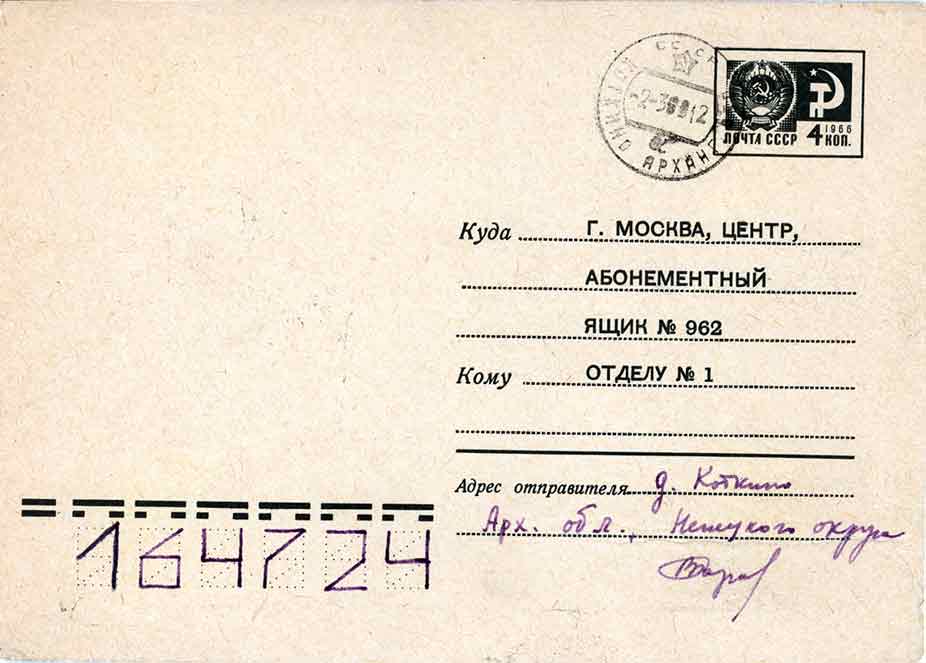 СССР
КОТКИНО АРХАНГ
-2-3
ПОЧТА СССР 4 КОП.
1966
Куда Г. МОСКВА, ЦЕНТР,
АБОНЕМЕНТНЫЙ
ЯЩИК № 962
Кому ОТДЕЛУ № 1
Адрес отправителя д. Коткино
Арх. обл., Ненецкого округа
164724